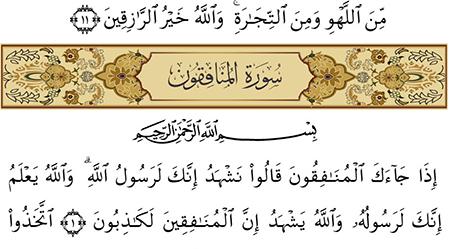 مِّنَ ٱللَّهْوِ وَمِنَ ٱلتِّجَٰرَةِۚ وَٱللَّهُ خَيْرُ ٱلرَّٰزِقِينَ ۝١١
سُورَةُ المُنَافِقُونَ
بِسْمِ ٱللَّهِ ٱلرَّحْمَٰنِ ٱلرَّحِيمِ
إِذَا جَآءَكَ ٱلْمُنَٰفِقُونَ قَالُوا۟ نَشْهَدُ إِنَّكَ لَرَسُولُ ٱللَّهِۗ وَٱللَّهُ يَعْلَمُ
إِنَّكَ لَرَسُولُهُۥ وَٱللَّهُ يَشْهَدُ إِنَّ ٱلْمُنَٰفِقِينَ لَكَٰذِبُونَ ۝١ ٱتَّخَذُوٓا۟